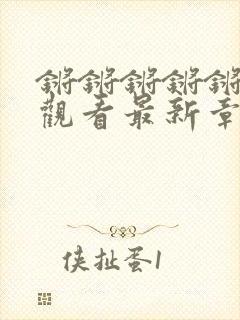 锵锵锵锵锵
觀看最新章
侠扯蛋1